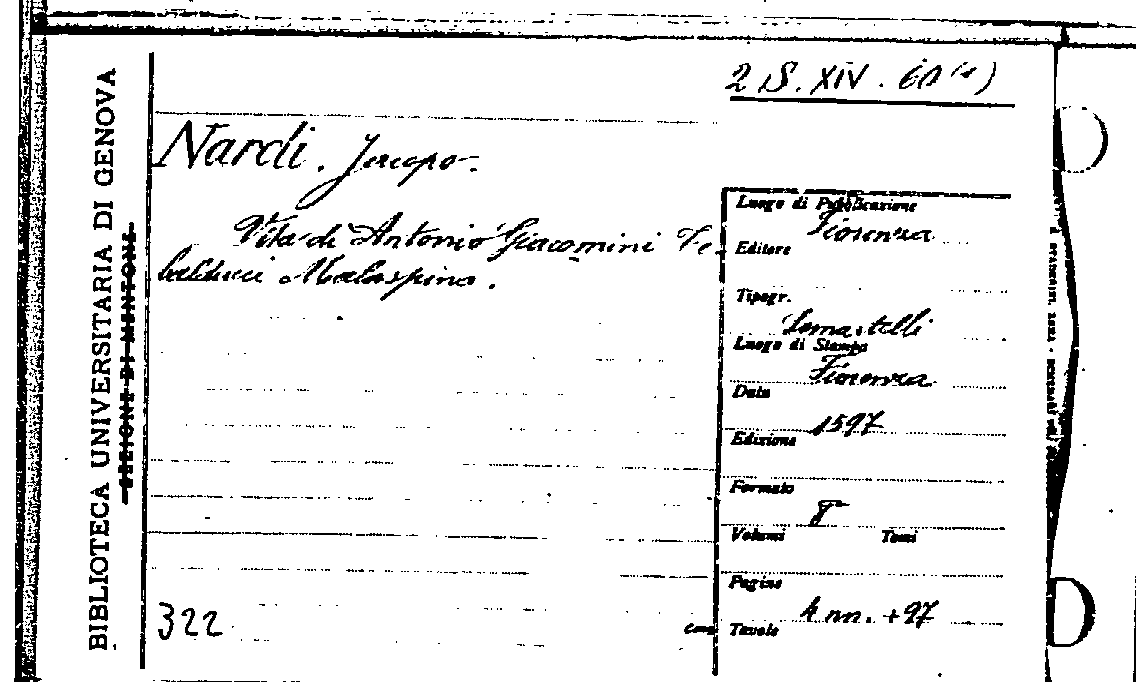 2 S. XIV. 60 (4)
BIBLIOTECA UNIVERSITARIA DI GENOVA
SEZIONE DI MENTONE
Nardi. Jacopo.
Vita di Antonio Giacomini Te
balducci Malaspina.
Luogo di Pubblicazione
Fiorenza
Editore
Tipogr.
Sermartelli
Luogo di Stampa
Fiorenza
Data
1597
Edizione
Formato
8°
Volumi Tomi
Pagine
4 nn. + 97
Tavole
322